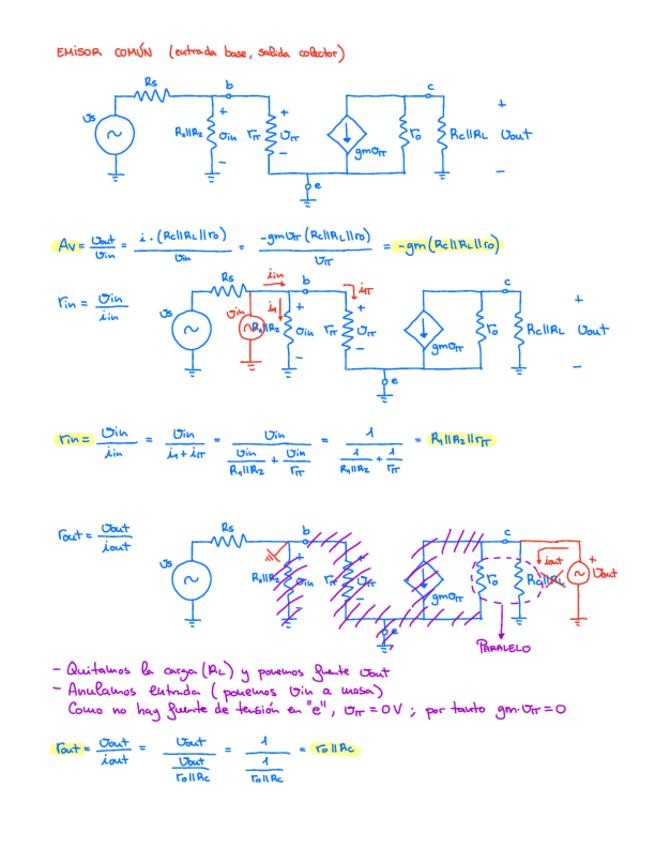 EMISOR COMÚN (entrada base, salida colector)
Rs b c
Us + + +
R₁||R₂ Uin rπ Uπ gmUπ ro Rc||RL Uout
- - -
e
Av = Uout/Uin = i·(Rc||RL||ro)/Uin = -gmUπ(Rc||RL||ro)/Uπ = -gm(Rc||RL||ro)
rin = Uin/iin
Rs iin b iπ c
Us Uin i₁ + + +
R₁||R₂ Uin rπ Uπ gmUπ ro Rc||RL Uout
- - -
e
rin = Uin/iin = Uin/(i₁+iπ) = Uin/(Uin/R₁||R₂ + Uin/rπ) = 1/(1/R₁||R₂ + 1/rπ) = R₁||R₂||rπ
rout = Uout/iout
Rs b c
Us + + iout +
R₁||R₂ Uin rπ Uπ gmUπ ro Rc||RL Uout
e
PARALELO
- Quitamos la carga (RL) y ponemos fuente Uout
- Anulamos entrada (ponemos Uin a masa)
Como no hay fuente de tensión en "e", Uπ = 0V ; por tanto gm·Uπ = 0
rout = Uout/iout = Uout/(Uout/ro||Rc) = 1/(1/ro||Rc) = ro||Rc